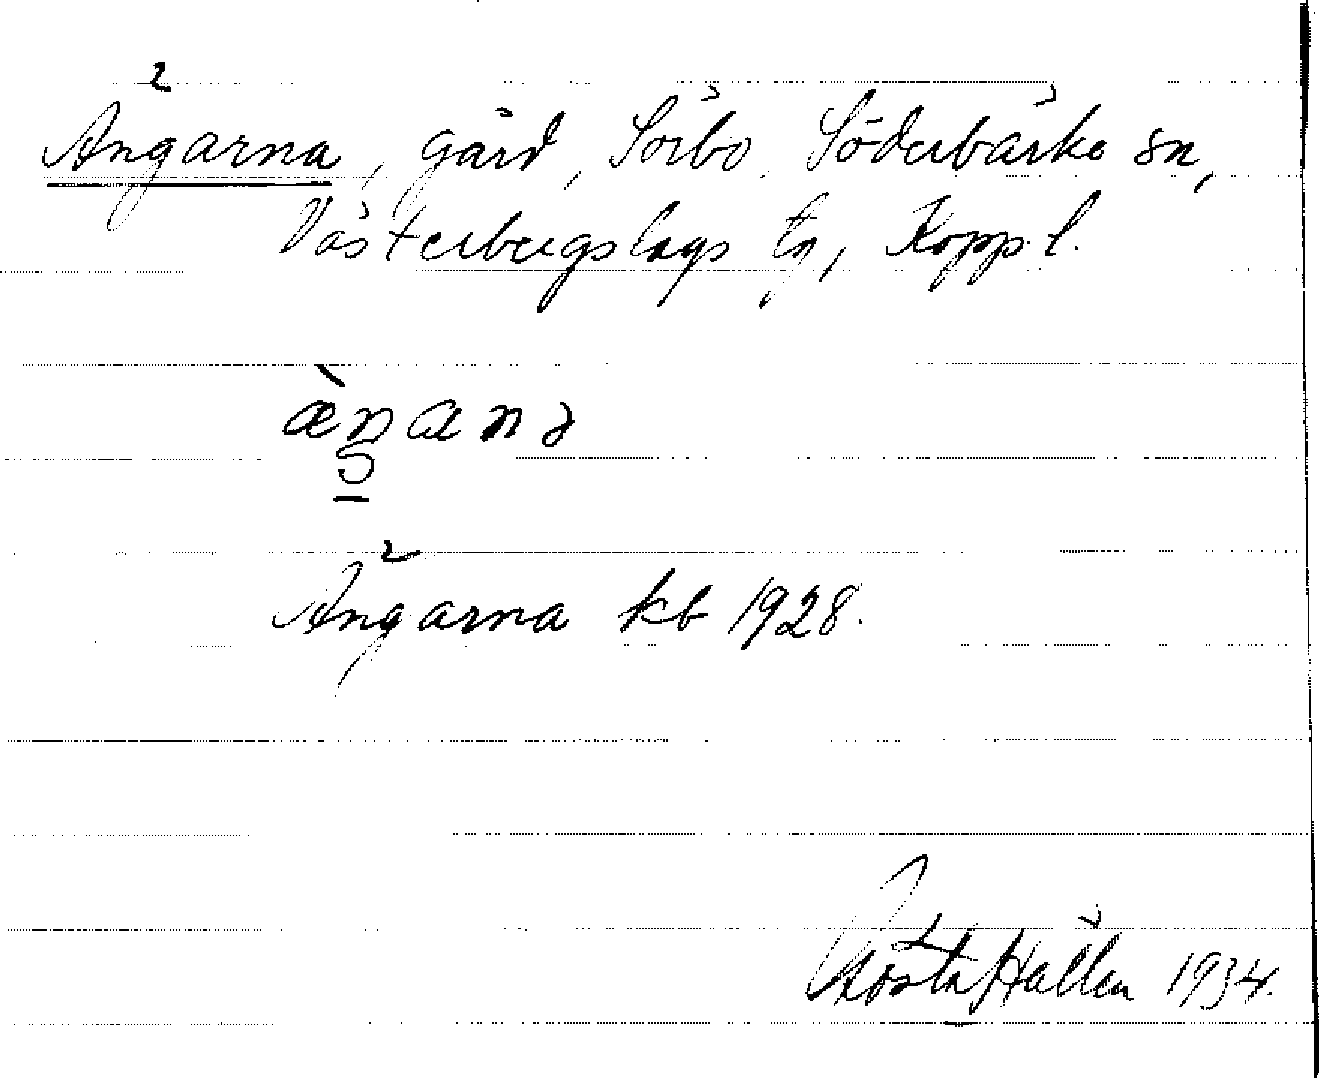 Ängarna, gård, Sörbo, Söderbärke sn,
Västerbergslags tg, Kopp. l.
Ängarna kb 1928.
Gösta Hallén 1934.